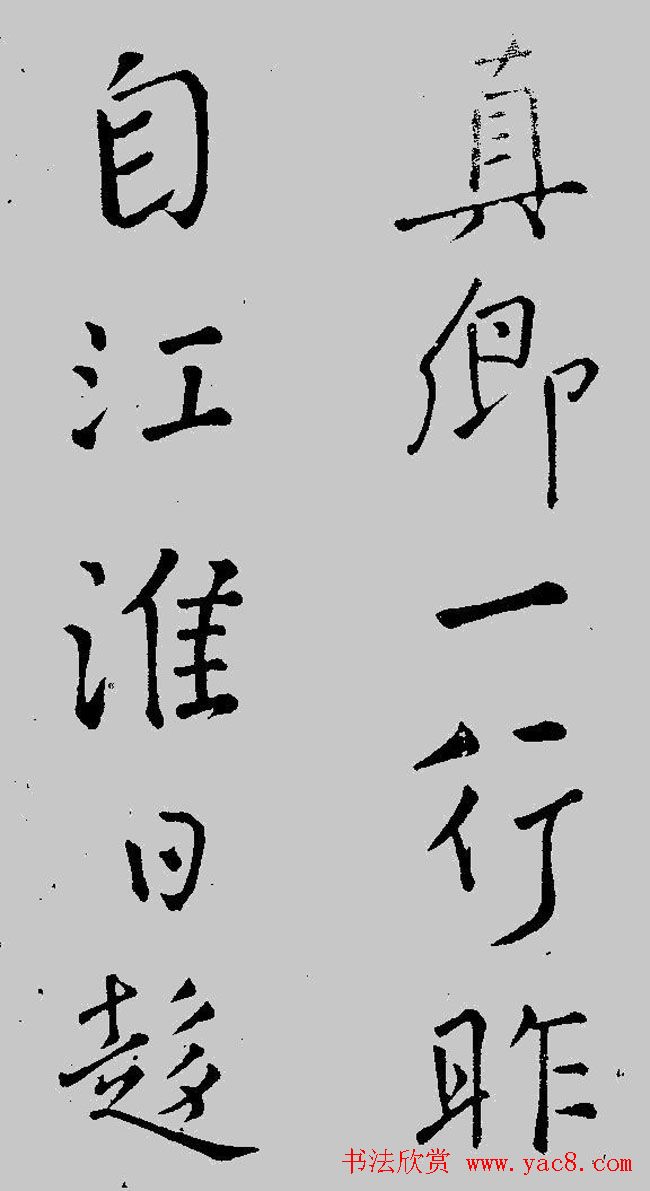 真卿一行昨
自江淮日趍
书法欣赏 www.yac8.com